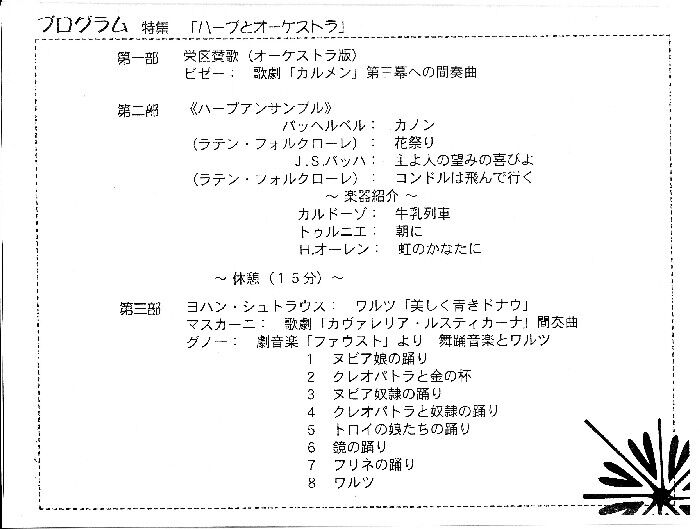 プログラム 特集 「ハープとオーケストラ」
第一部 栄区賛歌（オーケストラ版）
ビゼー： 歌劇「カルメン」第三幕への間奏曲
第二部 《ハープアンサンブル》
パッヘルベル： カノン
（ラテン・フォルクローレ）： 花祭り
J.S.バッハ： 主よ人の望みの喜びよ
（ラテン・フォルクローレ）： コンドルは飛んで行く
～ 楽器紹介 ～
カルドーゾ： 牛乳列車
トゥルニエ： 朝に
H.オーレン： 虹のかなたに
～ 休憩（１５分）～
第三部 ヨハン・シュトラウス： ワルツ「美しく青きドナウ」
マスカーニ： 歌劇「カヴァレリア・ルスティカーナ」間奏曲
グノー： 劇音楽「ファウスト」より 舞踊音楽とワルツ
1 ヌビア娘の踊り
2 クレオパトラと金の杯
3 ヌビア奴隷の踊り
4 クレオパトラと奴隷の踊り
5 トロイの娘たちの踊り
6 鏡の踊り
7 フリネの踊り
8 ワルツ